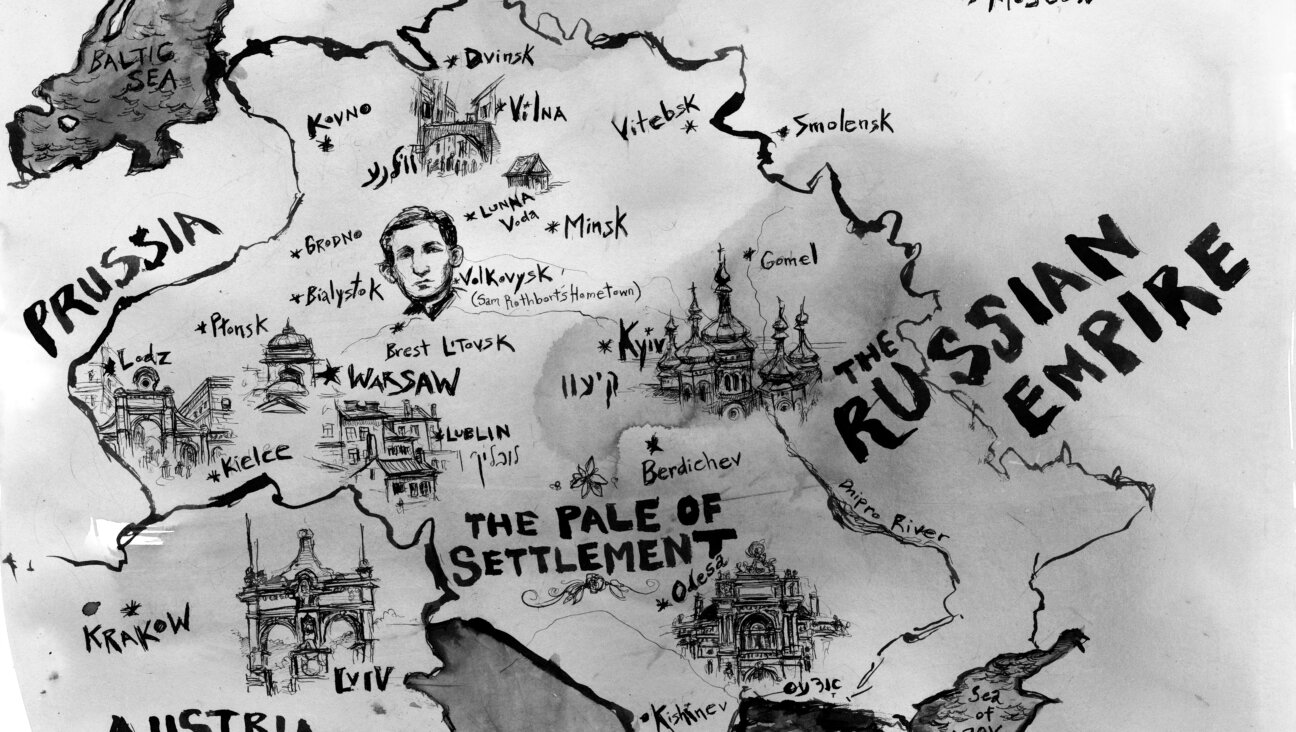 Moscow
BALTIC
SEA
Dvinsk
KOVNO
VILNA
Vitebsk
Smolensk
LUNNA
Voda
Minsk
PRUSSIA
GRODNO
Gomel
Bialystok
Volkovysk
(Sam Rothbort's Hometown)
THE
RUSSIAN
EMPIRE
Płonsk
Brest Litovsk
Kyiv
Lodz
WARSAW
קיעוו
LUBLIN
לובלין
Kielce
Berdichev
Dnipro River
THE PALE OF
SETTLEMENT
Odesa
KRAKOW
LVIV
Kishinev
Sea
of
AUSTRIA